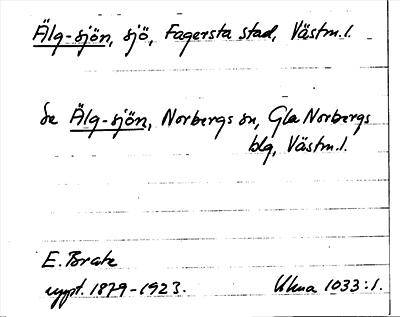 Älg-sjön, sjö, Fagersta stad, Västm.l.
se Älg-sjön, Norbergs sn, Gla Norbergs
blg, Västm.l.
E. Brate
uppt. 1879-1923.
Ulma 1033:1.